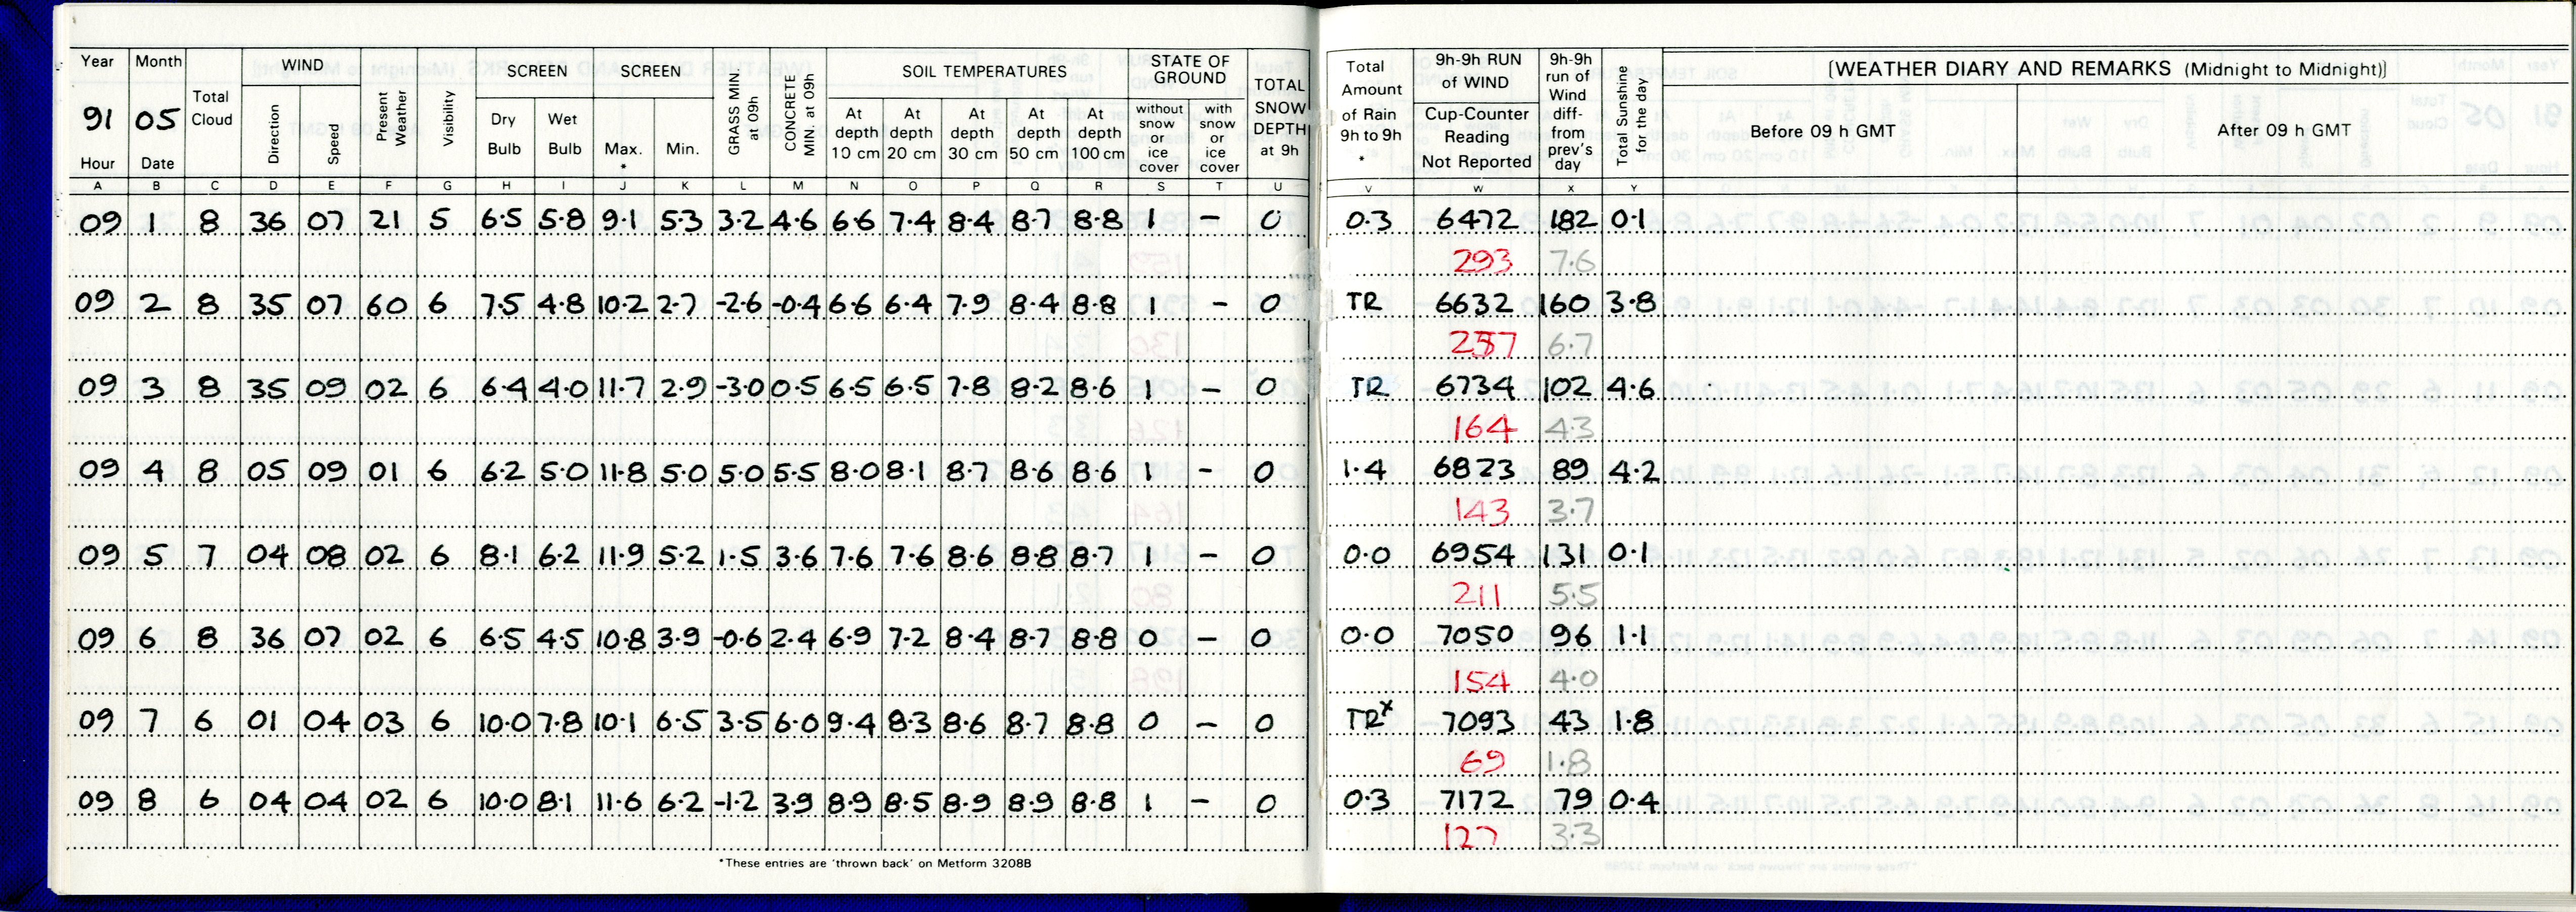 Year Month WIND SCREEN SCREEN SOIL TEMPERATURES STATE OF GROUND
91 05 Total Cloud Direction Speed Present Weather Visibility Dry Bulb Wet Bulb Max. * Min. GRASS MIN. at 09h CONCRETE MIN. at 09h At depth 10 cm At depth 20 cm At depth 30 cm At depth 50 cm At depth 100 cm without snow or ice cover with snow or ice cover TOTAL SNOW DEPTH at 9h
Hour Date
Total Amount of Rain 9h to 9h * 9h-9h RUN of WIND Cup-Counter Reading Not Reported 9h-9h run of Wind diff- from prev's day Total Sunshine for the day [WEATHER DIARY AND REMARKS (Midnight to Midnight)]
Before 09 h GMT After 09 h GMT
A B C D E F G H I J K L M N O P Q R S T U V W X Y
09 1 8 36 07 21 5 6.5 5.8 9.1 5.3 3.2 4.6 6.6 7.4 8.4 8.7 8.8 1 – 0 0.3 6472 182 0.1
293 7.6
09 2 8 35 07 60 6 7.5 4.8 10.2 2.7 -2.6 -0.4 6.6 6.4 7.9 8.4 8.8 1 – 0 TR 6632 160 3.8
257 6.7
09 3 8 35 09 02 6 6.4 4.0 11.7 2.9 -3.0 0.5 6.5 6.5 7.8 8.2 8.6 1 – 0 TR 6734 102 4.6
164 4.3
09 4 8 05 09 01 6 6.2 5.0 11.8 5.0 5.0 5.5 8.0 8.1 8.7 8.6 8.6 1 – 0 1.4 6823 89 4.2
143 3.7
09 5 7 04 08 02 6 8.1 6.2 11.9 5.2 1.5 3.6 7.6 7.6 8.6 8.8 8.7 1 – 0 0.0 6954 131 0.1
211 5.5
09 6 8 36 07 02 6 6.5 4.5 10.8 3.9 -0.6 2.4 6.9 7.2 8.4 8.7 8.8 0 – 0 0.0 7050 96 1.1
154 4.0
09 7 6 01 04 03 6 10.0 7.8 10.1 6.5 3.5 6.0 9.4 8.3 8.6 8.7 8.8 0 – 0 TRx 7093 43 1.8
69 1.8
09 8 6 04 04 02 6 10.0 8.1 11.6 6.2 -1.2 3.9 8.9 8.5 8.9 8.9 8.8 1 – 0 0.3 7172 79 0.4
127 3.3
*These entries are 'thrown back' on Metform 3208B